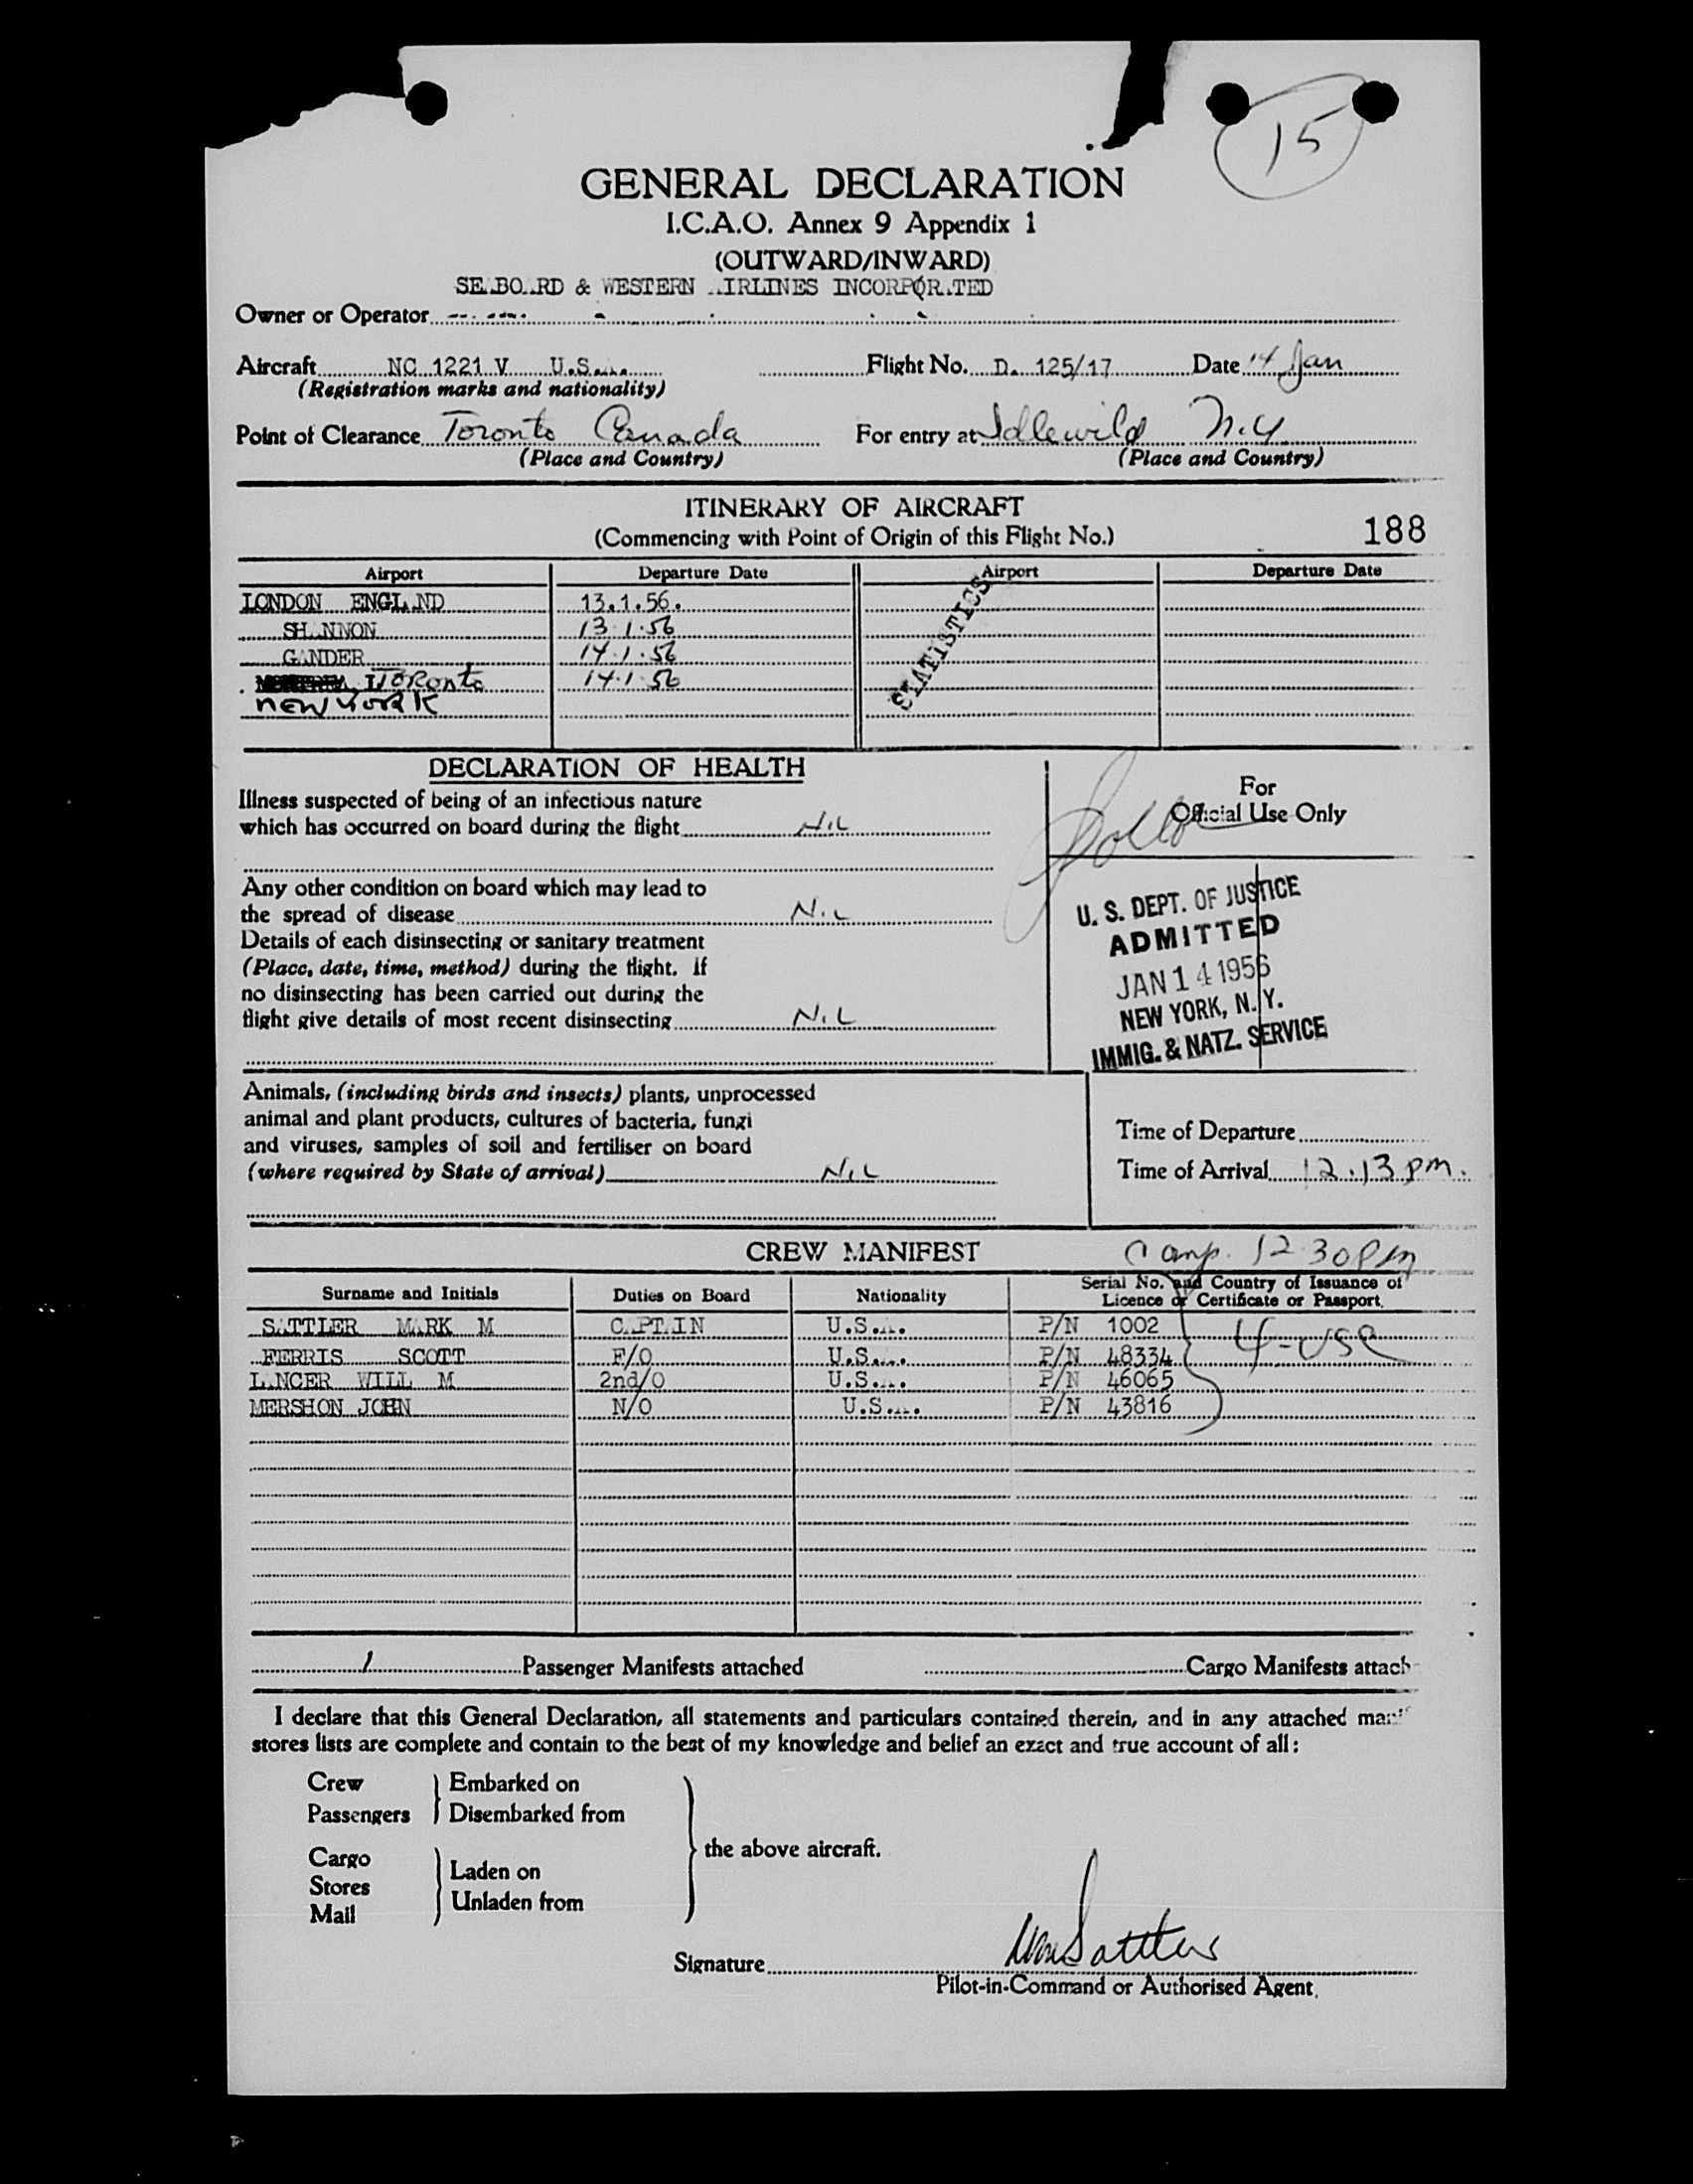 15
GENERAL DECLARATION
I.C.A.O. Annex 9 Appendix 1
(OUTWARD/INWARD)
SE.BO.RD & WESTERN .IRLINES INCORPOR.TED
Owner or Operator
Aircraft NC 1221 V U.S... Flight No. D. 125/17 Date 14 Jan
(Registration marks and nationality)
Point of Clearance Toronto Canada For entry at Idlewild N.Y
(Place and Country) (Place and Country)
ITINERARY OF AIRCRAFT
(Commencing with Point of Origin of this Flight No.) 188
Airport Departure Date Airport Departure Date
LONDON ENGL.ND 13.1.56.
SH.NNON 13.1.56
GANDER 14.1.56
TORONTO 14.1.56
NEW YORK
STATISTICS
DECLARATION OF HEALTH
Illness suspected of being of an infectious nature
which has occurred on board during the flight NIL
Any other condition on board which may lead to
the spread of disease NIL
Details of each disinsecting or sanitary treatment
(Place, date, time, method) during the flight. If
no disinsecting has been carried out during the
flight give details of most recent disinsecting NIL
For
Official Use Only
U. S. DEPT. OF JUSTICE
ADMITTED
JAN 14 1956
NEW YORK, N. Y.
IMMIG. & NATZ. SERVICE
Animals, (including birds and insects) plants, unprocessed
animal and plant products, cultures of bacteria, fungi
and viruses, samples of soil and fertiliser on board
(where required by State of arrival) NIL
Time of Departure
Time of Arrival 12.13 pm.
CREW MANIFEST 12 30 PM
Surname and Initials Duties on Board Nationality Serial No. and Country of Issuance of
Licence or Certificate or Passport.
S.TTLER M.RK M C.PT.IN U.S... P/N 1002
FERRIS SCOTT F/O U.S... P/N 48334 4-USC
L.NCER WILL M 2nd/O U.S... P/N 46065
MERSHON JOHN N/O U.S... P/N 43816
1 Passenger Manifests attached Cargo Manifests attach
I declare that this General Declaration, all statements and particulars contained therein, and in any attached mani
stores lists are complete and contain to the best of my knowledge and belief an exact and true account of all:
Crew Embarked on
Passengers Disembarked from
the above aircraft.
Cargo Laden on
Stores
Mail Unladen from
Signature MM Sattler
Pilot-in-Command or Authorised Agent.